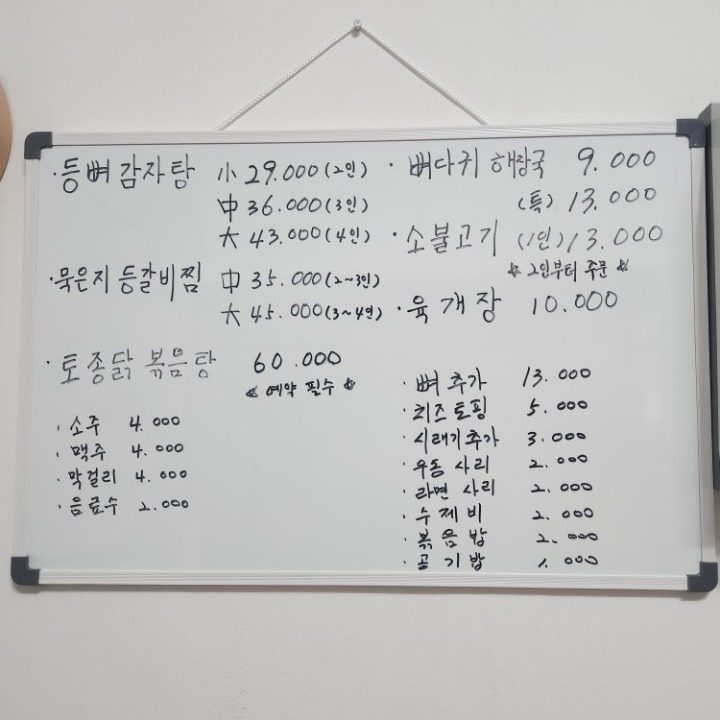 ·등뼈감자탕 小 29.000(2인)
中 36.000(3인)
大 43.000(4인)
·묵은지 등갈비찜 中 35.000(2~3인)
大 45.000(3~4인)
·토종닭 볶음탕 60.000
☆ 예약 필수 ☆
·소주 4.000
·맥주 4.000
·막걸리 4.000
·음료수 2.000
·뼈다귀 해장국 9.000
(특) 13.000
·소불고기 (1인) 13.000
☆ 2인부터 주문 ☆
·육개장 10.000
·뼈추가 13.000
·치즈토핑 5.000
·시래기추가 3.000
·우동 사리 2.000
·라면 사리 2.000
·수제비 2.000
·볶음밥 2.000
·공기밥 1.000